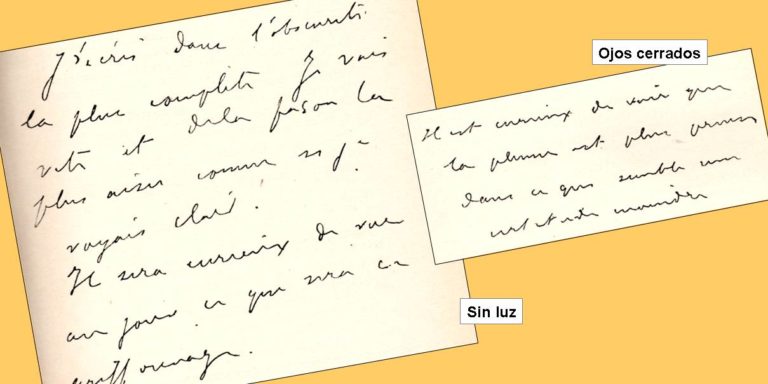 J'écris dans l'obscurité
la plus complète Je vais
vite et de la façon la
plus aisée comme si je
voyais clair.
Il sera curieux de voir
au jour ce que sera ce
griffonnage.
Ojos cerrados
Il est curieux de voir que
la plume est plus
dans ce que semble une
moindre
Sin luz